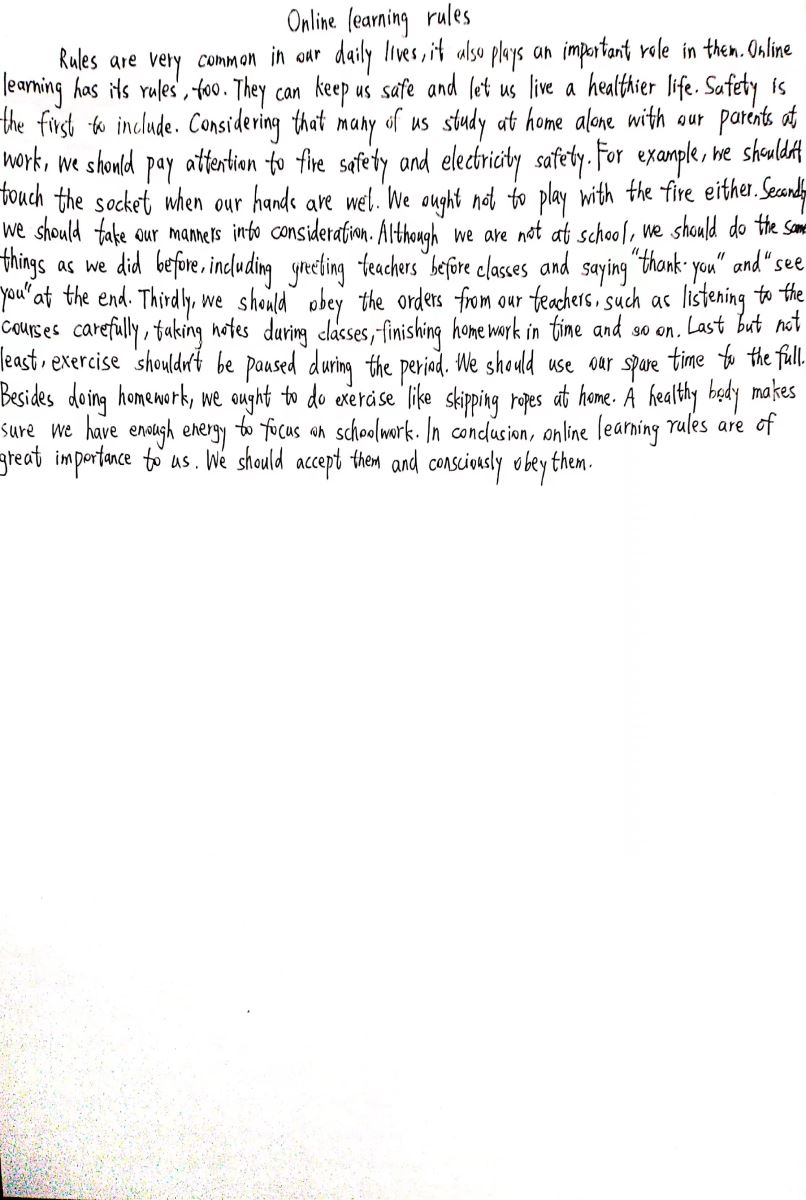 Online learning rules
Rules are very common in our daily lives, it also plays an important role in them. Online
learning has its rules, too. They can keep us safe and let us live a healthier life. Safety is
the first to include. Considering that many of us study at home alone with our parents at
work, we should pay attention to fire safety and electricity safety. For example, we shouldn't
touch the socket when our hands are wet. We ought not to play with the fire either. Secondly
we should take our manners into consideration. Although we are not at school, we should do the same
things as we did before, including greeting teachers before classes and saying "thank you" and "see
you" at the end. Thirdly, we should obey the orders from our teachers, such as listening to the
courses carefully, taking notes during classes, finishing homework in time and so on. Last but not
least, exercise shouldn't be paused during the period. We should use our spare time to the full.
Besides doing homework, we ought to do exercise like skipping ropes at home. A healthy body makes
sure we have enough energy to focus on schoolwork. In conclusion, online learning rules are of
great importance to us. We should accept them and consciously obey them.